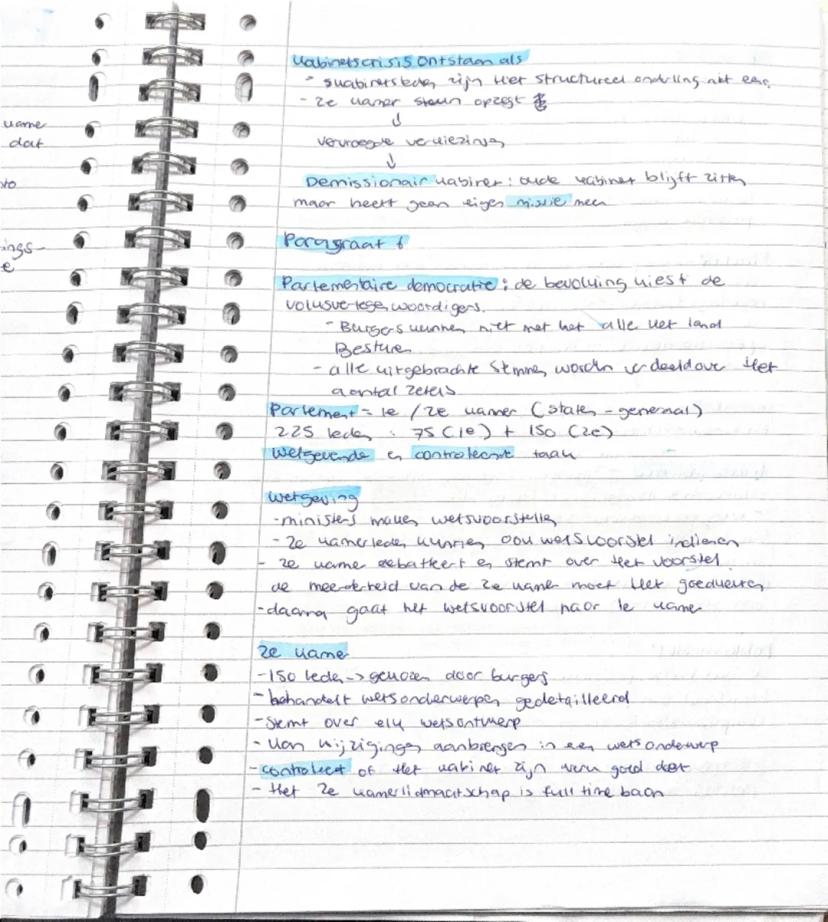 uame
dat
to
ings-
e
kabinetscrisis ontstaan als
- kabinetsleden zijn het structureel onderling niet eens
- 2e kamer steun opzegt
↓
vervroegde verkiezingen
↓
Demissionair kabinet: oude kabinet blijft zitten
maar heeft geen eigen missie meer
Paragraaf 6
Parlementaire democratie: de bevolking kiest de
volksvertegenwoordigers.
- Burgers kunnen niet met het alle het land
Besturen
- alle uitgebrachte stemmen worden verdeeld over het
aantal zetels
Parlement = 1e / 2e kamer (staten-generaal)
225 leden = 75 (1e) + 150 (2e)
wetgevende en controlerende taak
wetgeving
- ministers maken wetsvoorstellen
- 2e kamerleden kunnen ook wetsvoorstel indienen
- 2e kamer debatteert en stemt over het voorstel.
de meerderheid van de 2e kamer moet het goedkeuren
- daarna gaat het wetsvoorstel naar 1e kamer
2e kamer
- 150 leden -> gekozen door burgers
- behandelt wetsonderwerpen gedetailleerd
- stemt over elk wetsontwerp
- kan wijzigingen aanbrengen in een wetsonderwerp
- controleert of het kabinet zijn werk goed doet
- Het 2e kamerlidmaatschap is full time baan